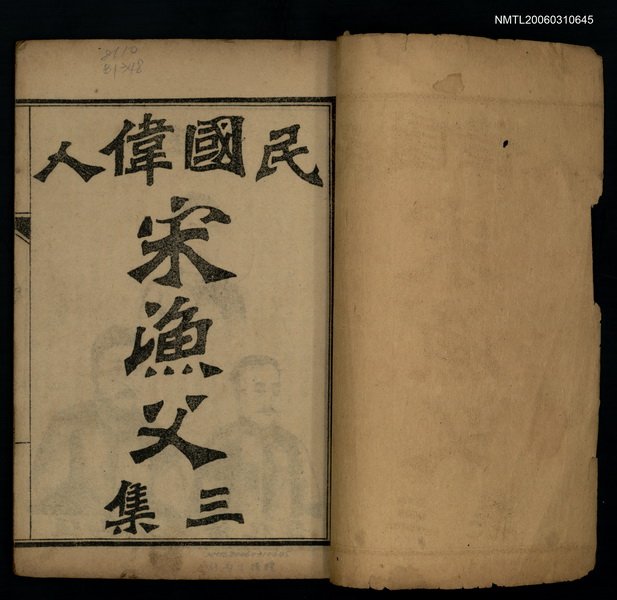 NMTL20060310645
8610
81348
民國偉人
宋漁父
三集